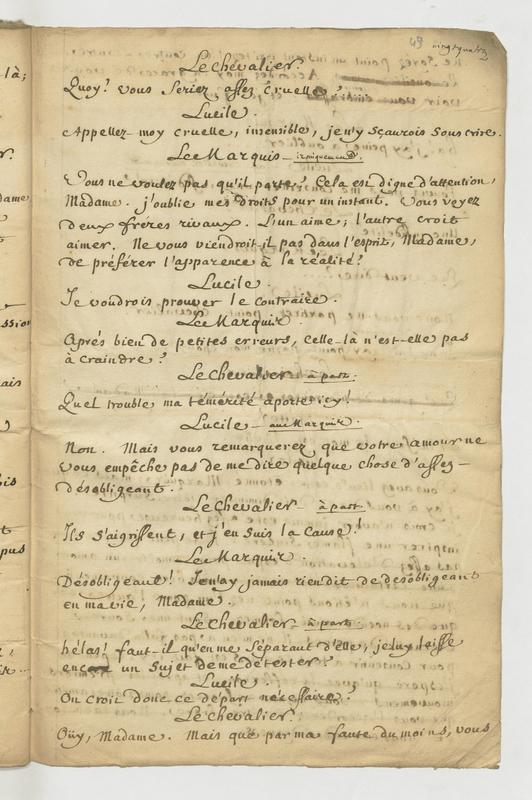 49 vingtquatre
Le Chevalier.
Quoy? vous seriez assez cruelle?
Lucile.
Appellez-moy cruelle, insensible, je n'y sçaurois souscrire.
Le Marquis - ironiquement.
Vous ne voulez pas qu'il parte? Cela est digne d'attention,
Madame. j'oublie mes droits pour un instant. Vous voyez
deux fréres rivaux. L'un aime; l'autre croit
aimer. Ne vous viendroit-il pas dans l'esprit, Madame,
de préférer l'apparence à la réalité?
Lucile.
Je voudrois prouver le contraire.
Le Marquis.
Aprés bien de petites erreurs, celle-là n'est-elle pas
à craindre?
Le Chevalier - à part.
Quel trouble ma témérité aporte icy!
Lucile - au Marquis.
Non. Mais vous remarquerez que votre amour ne
vous empêche pas de me dire quelque chose d'assez -
désobligeant.
Le Chevalier - à part.
Ils s'aigrissent, et j'en suis la cause!
Le Marquis.
Désobligeant! Je n'ay jamais rien dit de désobligeant
en ma vie, Madame.
Le Chevalier - à part.
hélas! faut-il qu'en me séparant d'elle, je luy laisse
encor un sujet de me détester?
Lucile.
On croit donc ce départ nécessaire?
Le Chevalier.
Oüy, Madame. Mais que par ma faute du moins, vous